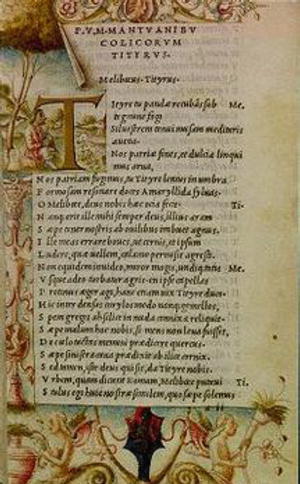 P. V. M. MANTVANI BV
COLICORVM
TITYRVS.
Meliboeus. Tityrus.
Tityre tu patulæ recubãs sub Me.
tegmine fagi
Siluestrem tenui musam meditaris
auena.
Nos patriæ fines, et dulcia linqui
mus arua,
Nos patriam fugimus, tu Tityre lentus in umbra
Formosam resonare doces Amaryllida syluas.
O Melibœe, deus nobis hæc ocia fecit. Ti.
Nanque erit ille mihi semper deus, illius aram
Sæpe tener nostris ab ouilibus imbuet agnus.
Ille meas errare boues, ut cernis, et ipsum
Ludere, quæ uellem, calamo permisit agresti.
Non equidem inuideo, miror magis, undique totis Me.
Vsque adeo turbatur agris. en ipse capellas
Protenus æger ago, hanc etiam uix Tityre duco.
Hic inter densas corylos modo nanque gemellos,
Spem gregis ah silice in nuda connixa reliquit.
Sæpe malum hoc nobis, si mens non leua fuisset,
De cœlo tactas memini prædicere quercus.
Sæpe sinistra caua prædixit ab ilice cornix.
Sed tamen, iste deus qui sit, da Tityre nobis.
Vrbem, quam dicunt Romam, Melibœe putaui Ti.
Stultus ego huic nostræ similem, quo sæpe solemus